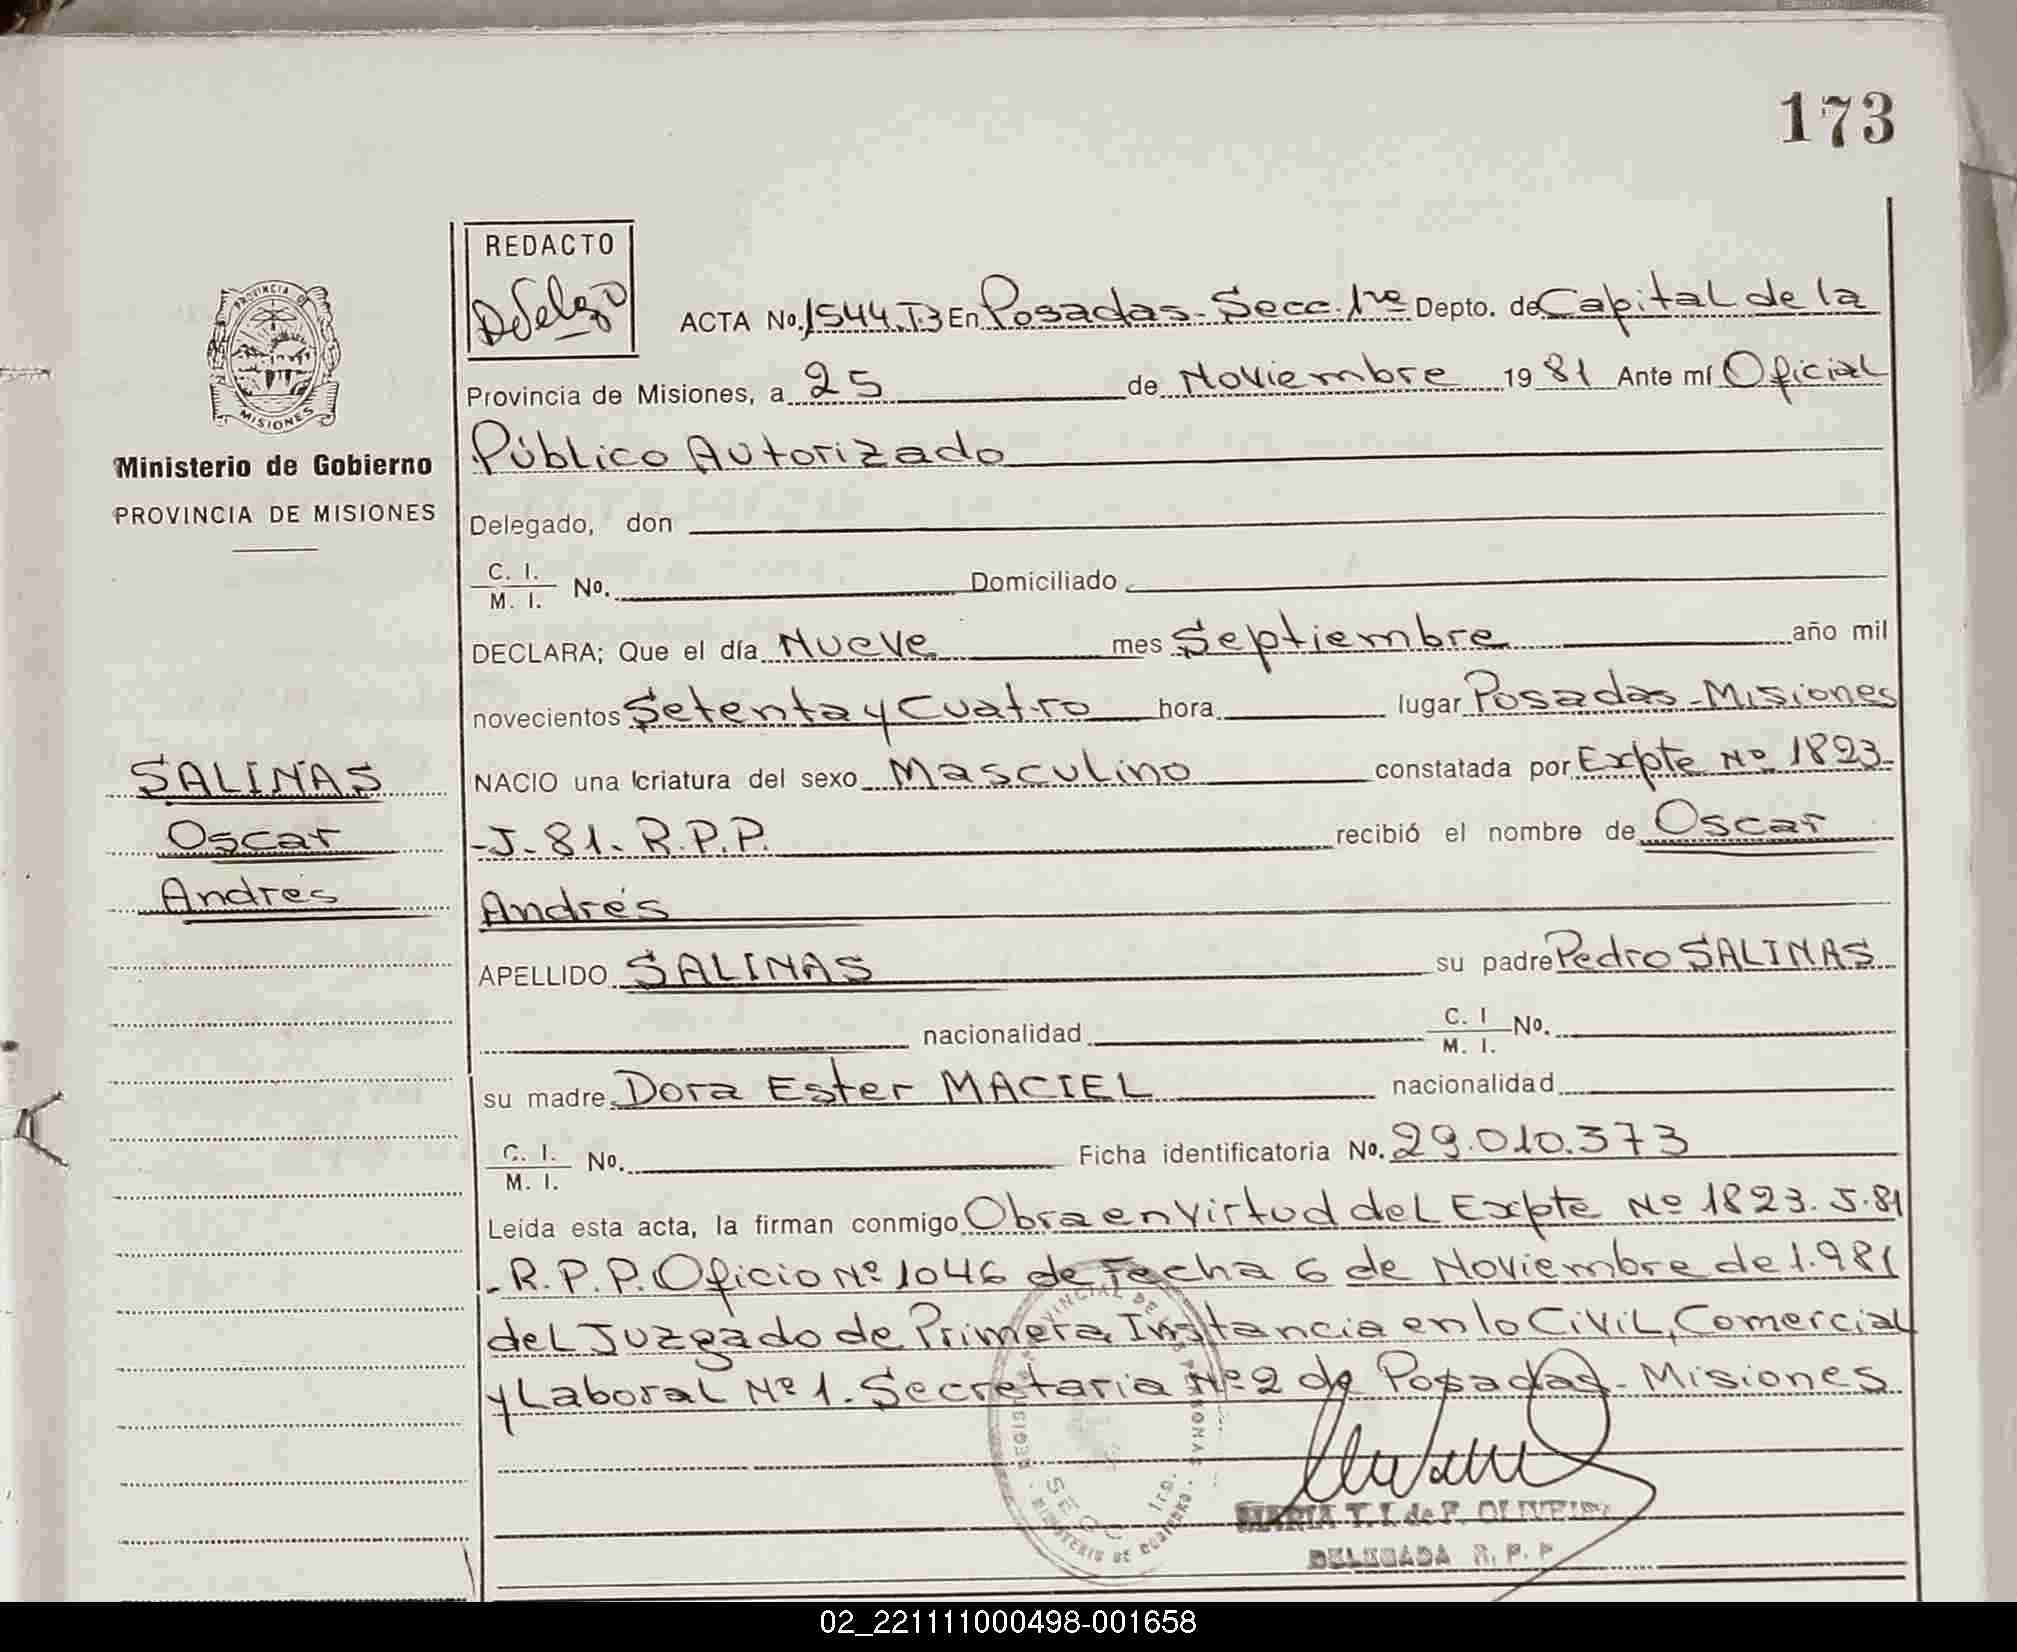 173
REDACTO
ACTA No. 1544.T.3 En Posadas - Secc. 1ra Depto. de Capital de la
Provincia de Misiones, a 25 de Noviembre 1981 Ante mí Oficial
PROVINCIA DE
MISIONES
Ministerio de Gobierno
PROVINCIA DE MISIONES
Público Autorizado
Delegado, don
C. I.
M. I. No. Domiciliado
DECLARA; Que el día Nueve mes Septiembre año mil
novecientos Setenta y Cuatro hora lugar Posadas - Misiones
SALINAS
Oscar
Andrés
NACIO una criatura del sexo Masculino constatada por Expte Nº 1823-
-J-81- R.P.P. recibió el nombre de Oscar
Andrés
APELLIDO SALINAS su padre Pedro SALINAS
nacionalidad C. I
M. I. No.
su madre Dora Ester MACIEL nacionalidad
C. I.
M. I. No. Ficha identificatoria No. 29.010.373
Leída esta acta, la firman conmigo Obra en virtud del Expte Nº 1823. J-81
- R.P.P. Oficio Nº 1046 de Fecha 6 de Noviembre de 1.981
del Juzgado de Primera Instancia en lo Civil, Comercial
y Laboral Nº 1. Secretaria Nº 2 de Posadas - Misiones
MARIA T. I. de F. OLIVEIRA
DELEGADA R. P. P
02_221111000498-001658